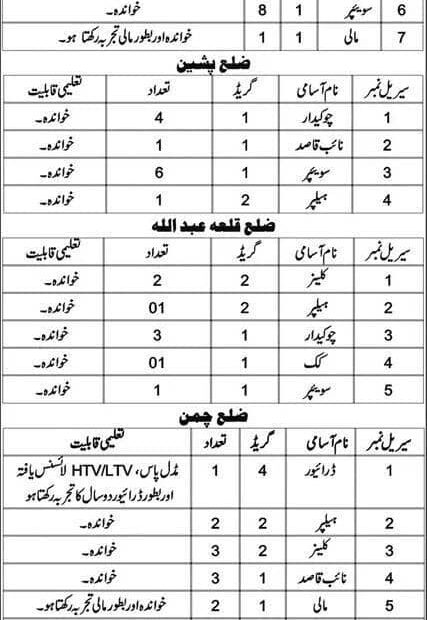 6 سویپر 1 8 خواندہ۔
7 مالی 1 1 خواندہ اور بطور مالی تجربہ رکھتا ہو۔
ضلع پشین
سیریل نمبر نام آسامی گریڈ تعداد تعلیمی قابلیت
1 چوکیدار 1 4 خواندہ۔
2 نائب قاصد 1 1 خواندہ۔
3 سویپر 1 6 خواندہ۔
4 ہیلپر 2 1 خواندہ۔
ضلع قلعہ عبداللہ
سیریل نمبر نام آسامی گریڈ تعداد تعلیمی قابلیت
1 کلینر 2 2 خواندہ۔
2 ہیلپر 2 01 خواندہ۔
3 چوکیدار 1 3 خواندہ۔
4 کک 1 01 خواندہ۔
5 سویپر 1 1 خواندہ۔
ضلع چمن
سیریل نمبر نام آسامی گریڈ تعداد تعلیمی قابلیت
1 ڈرائیور 4 1 مڈل پاس، HTV/LTV لائسنس یافتہ
اور بطور ڈرائیور دو سال کا تجربہ رکھتا ہو
2 ہیلپر 2 2 خواندہ۔
3 کلینر 2 3 خواندہ۔
4 نائب قاصد 1 3 خواندہ۔
5 مالی 1 2 خواندہ اور بطور مالی تجربہ رکھتا ہو۔